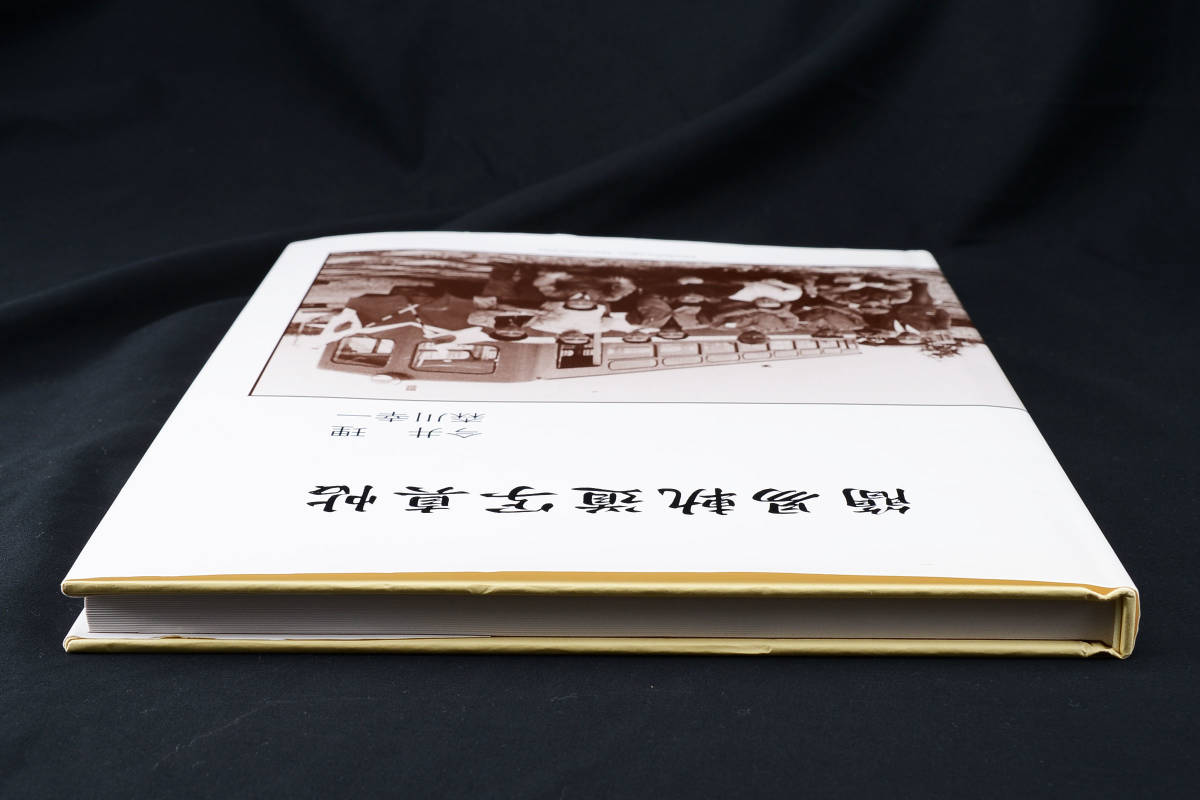 簡易軌道写真帖
今井 理
森川幸一